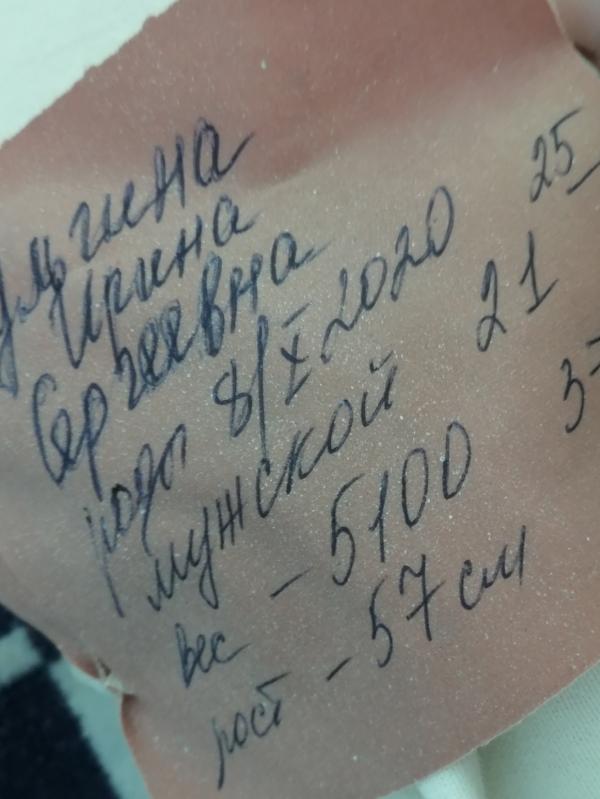 Ирина
Сергеевна
роды 8/X 2020 25
мужской 21
вес - 5100
рост - 57 см